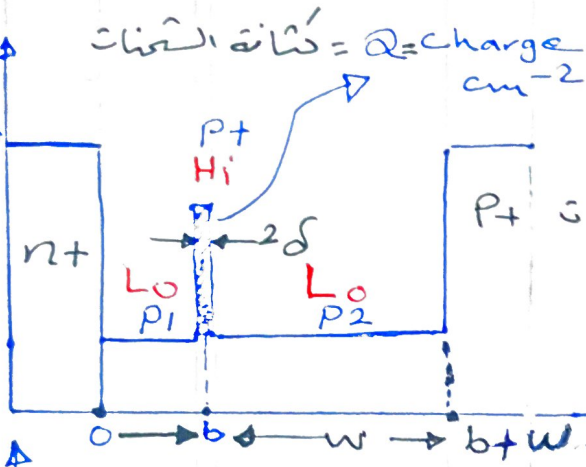 كثافة الشحنات = Q = Charge
cm⁻²
P+
Hi
n+
2δ
P+
Lo
Lo
P1
P2
0
b
w
b+w